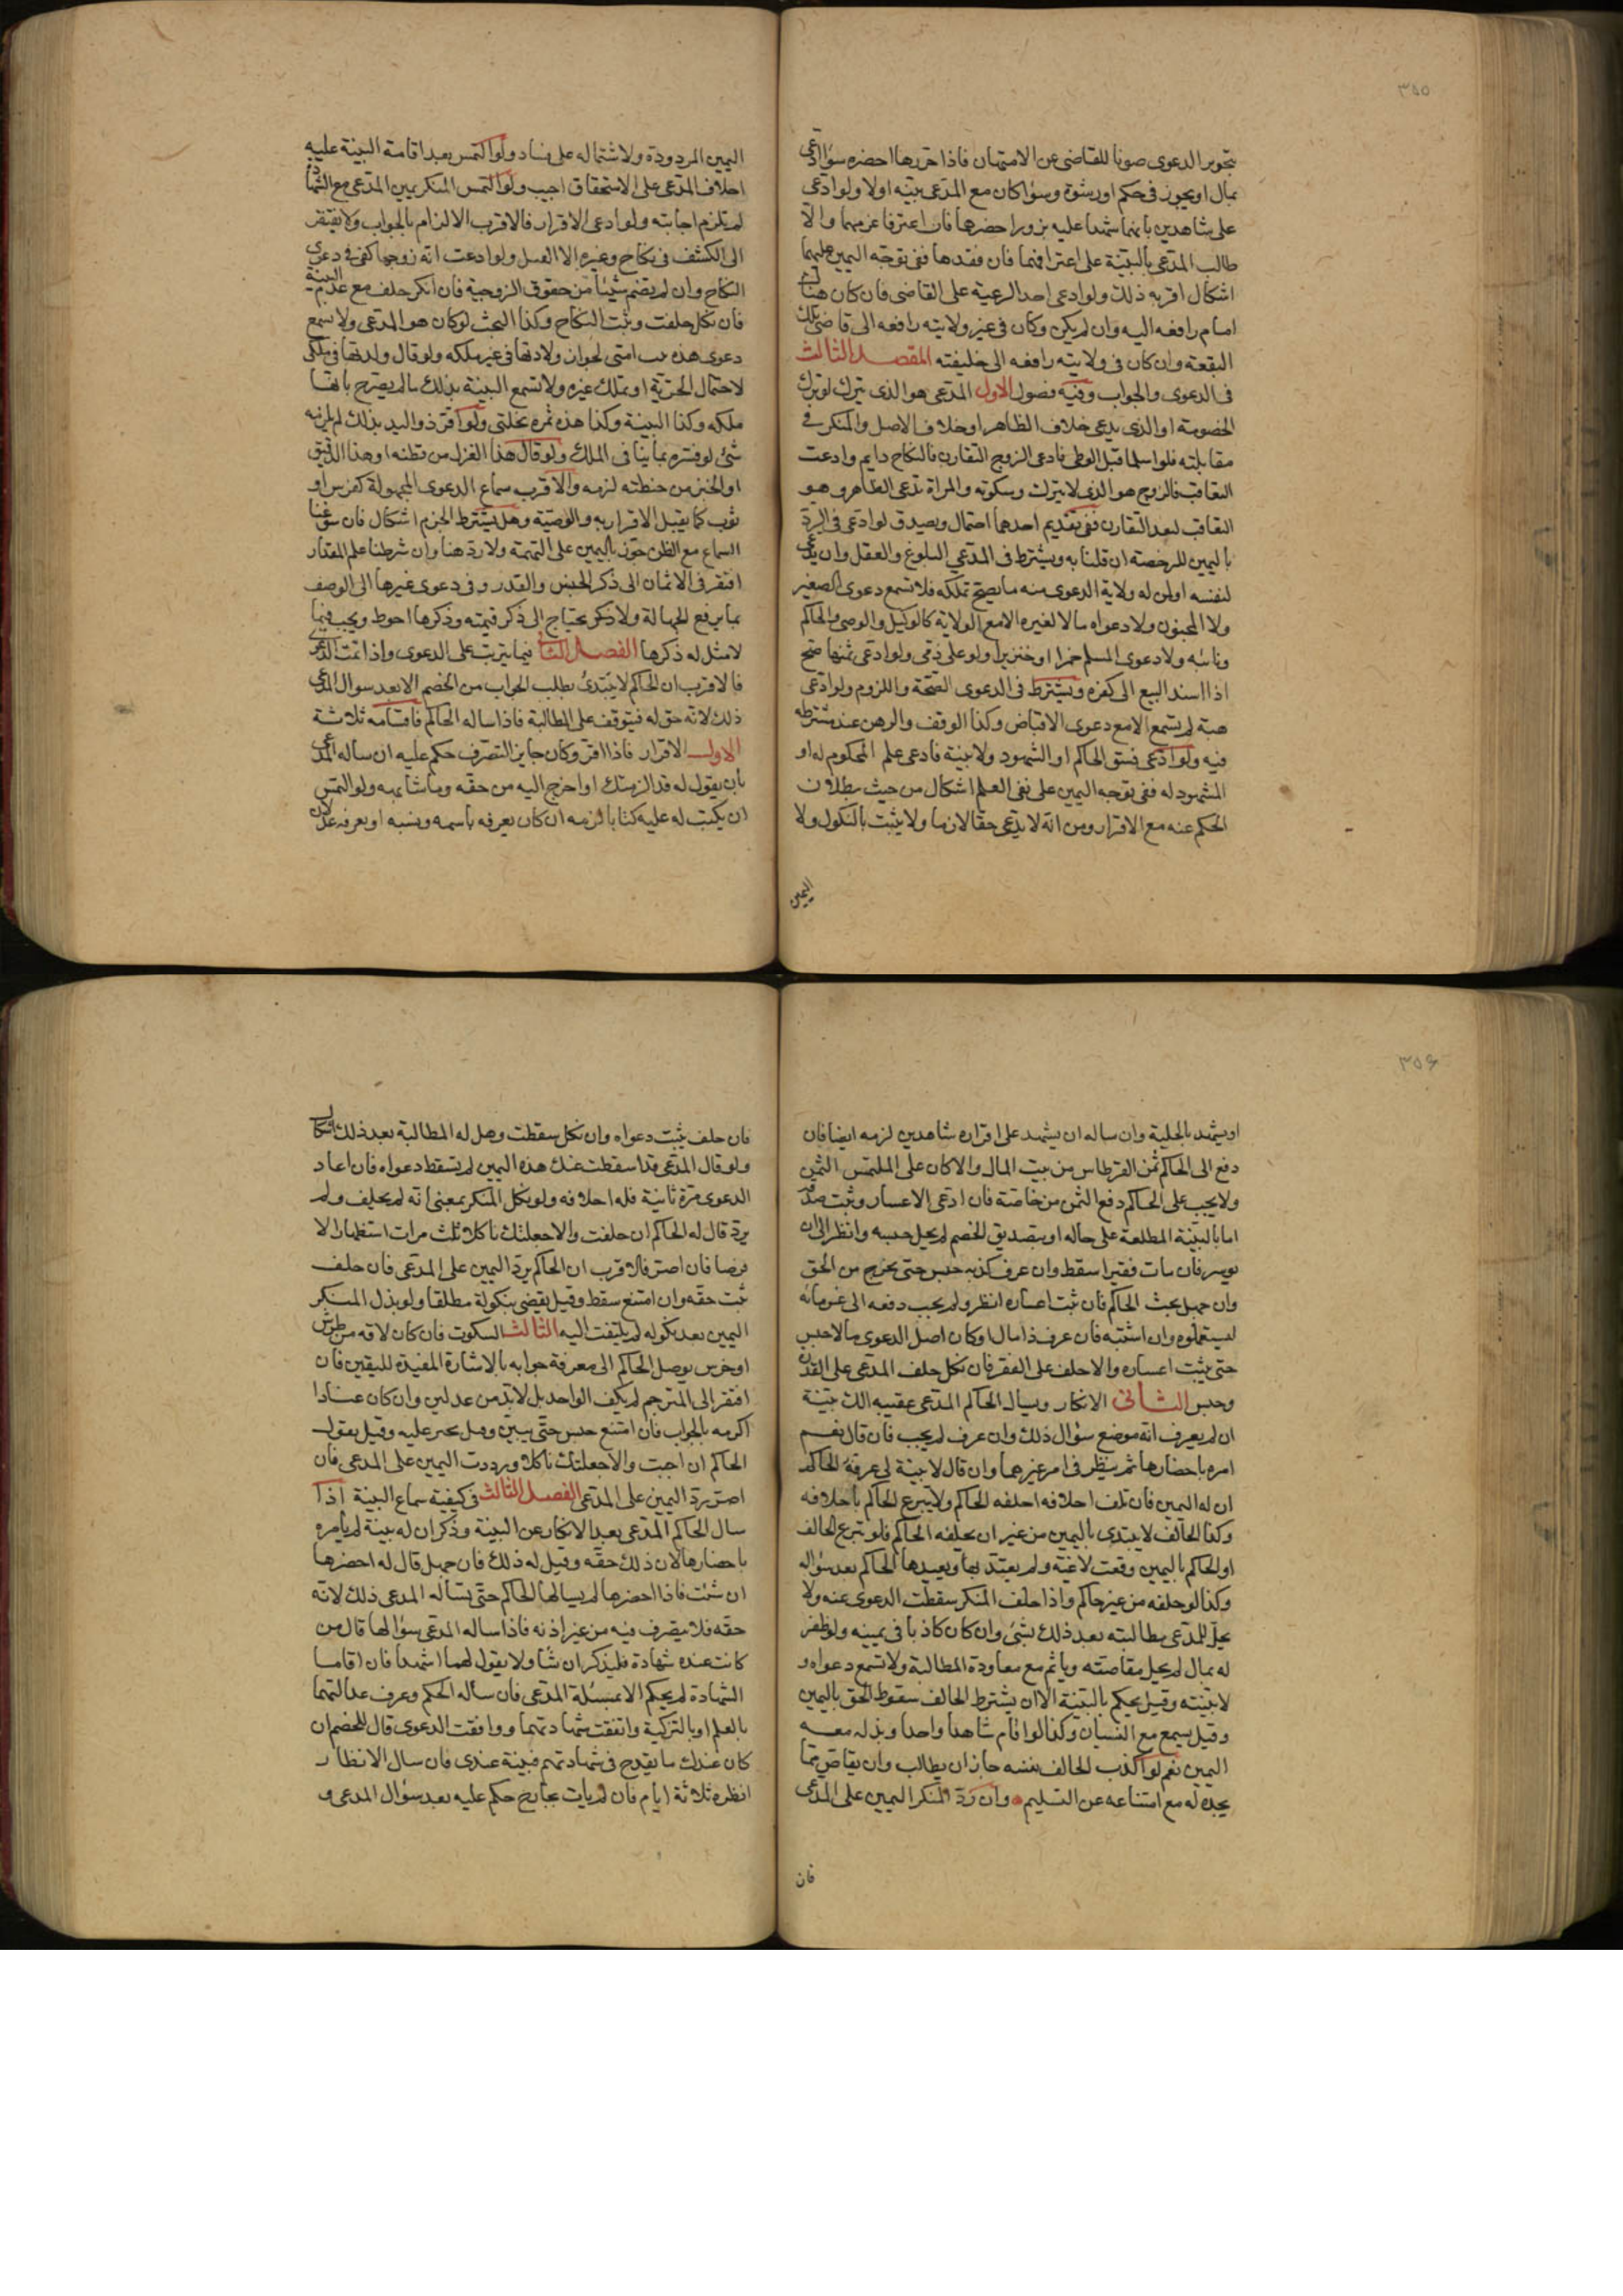 ٣٥٥
بتحرير الدعوى صونا للقاضى عن الامتهان فاذا حررها احضره سؤا ادعى
بمال او بجور فى حكم او رشوة وسؤا كان مع المدعى بينه اولا ولو ادعى
على شاهدين بانهما شهدا عليه بزور احضرها فان اعترفا غرمهما والا
طالب المدعى بالبينة على اعترافهما فان فقدها ففى توجه اليمين عليهما
اشكال اقربه ذلك ولو ادعى احد الرعية على القاضى فان كان هناك
امام رافعه اليه وان لم يكن وكان فى غير ولايته رافعه الى قاضى تلك
البقعة وان كان فى ولايته رافعه الى خليفته المقصد الثالث
فى الدعوى والجواب وفيه فصول الاول المدعى هو الذى يترك لو ترك
الخصومة او الذى يدعى خلاف الظاهر او خلاف الاصل والمنكر فى
مقابلته فلو اسلما قبل الوطى فادعى الزوج التقارن فالنكاح دايم وادعت
التعاقب فالزوج هو الذى لا يترك وسكوته والمراة تدعى الظاهر وهو
التعاقب لبعد التقارن ففى تقديم احدهما احتمال ويصدق لو ادعى فى الرد
باليمين للرخصة ان قلنا به ويشترط فى المدعى البلوغ والعقل وان يدعى
لنفسه او لمن له ولاية الدعوى منه ما يصح تملكه فلا تسمع دعوى الصغير
ولا المجنون ولا دعواه مالا لغيره الا مع الولاية كالوكيل والوصى والحاكم
ونائبه ولا دعوى المسلم خمرا او خنزيرا ولو على ذمى ولو ادعى ثمنها صح
اذا اسند البيع الى كفره ويشترط فى الدعوى الصحة واللزوم ولو ادعى
هبة لم يسمع الا مع دعوى الاقباض وكذا الوقف والرهن عند مشترطه
فيه ولو ادعى فسق الحاكم او الشهود ولا بينة فادعى علم المحكوم له او
المشهود له ففى توجه اليمين على نفى العلم اشكال من حيث بطلان
الحكم عنه مع الاقرار ومن انه لا يدعى حقا لازما ولا يثبت بالنكول ولا
اليمين
اليمين المردودة ولاشتماله على فساد ولو التمس بعد اقامة البينة عليه
احلاف المدعى على الاستحقاق اجيب ولو التمس المنكر يمين المدعى مع الشهادة
لم تلزم اجابته ولو ادعى الاقرار فالاقرب الالزام بالجواب ولا يفتقر
الى الكشف فى نكاح وغيره الا القتل ولو ادعت انه زوجها كفى فى دعوى
النكاح وان لم يضم شيئا من حقوق الزوجية فان انكر حلف مع عدم البينة
فان نكل حلفت وثبت النكاح وكذا البحث لو كان هو المدعى ولا تسمع
دعوى هذه بنت امتى لجواز ولادتها فى غير ملكه ولو قال ولدتها فى ملكى
لاحتمال الحرية او تملك غيره ولا تسمع البينة بذلك ما لم يصرح بانها
ملكه وكذا البينة وكذا هذه ثمرة نخلتى ولو اقر ذو اليد بذلك لم يلزمه
شئ لو فسره بما ينافى الملك ولو قال هذا الغزل من قطنه او هذا الدقيق
او الخبز من حنطته لزمه والاقرب سماع الدعوى المجهولة كفرس او
ثوب كما يقبل الاقرار به والوصية وهل يشترط الجزم اشكال فان سوغنا
السماع مع الظن جوز باليمين على التهمة ولا رد هنا وان شرطنا علم المقدار
افتقر فى الاثمان الى ذكر الجنس والقدر وفى دعوى غيرها الى الوصف
بما يرفع الجهالة ولا يحتاج الى ذكر قيمته وذكرها احوط ويجب فيما
لا مثل له ذكرها الفصل الثانى فيما يترتب على الدعوى واذا تمت الدعوى
فالاقرب ان الحاكم لا يبتدئ بطلب الجواب من الخصم الا بعد سوال المدعى
ذلك لانه حق له فيتوقف على المطالبة فاذا ساله الحاكم فاقسامه ثلاثة
الاول الاقرار فاذا اقر وكان جايز التصرف حكم عليه ان ساله المدعى
بان يقول له قد الزمتك او اخرج اليه من حقه وما شابهه ولو التمس
ان يكتب له عليه كتابا لزمه ان كان يعرفه باسمه ونسبه او يعرفه عدلان
٣٥٦
او يشهد بالحلية وان ساله ان يشهد على اقراره شاهدين لزمه ايضا فان
دفع الى الحاكم ثمن القرطاس من بيت المال والا كان على الملتمس الثمن
ولا يجب على الحاكم دفع الثمن من خاصة فان ادعى الاعسار وثبت صدقه
اما بالبينة المطلعة على حاله او بتصديق الخصم لم يحل حبسه وانظر الى ان
يوسر فان مات فقيرا سقط وان عرف كذبه حبس حتى يخرج من الحق
وان جهل بحث الحاكم فان ثبت اعساره انظر ولم يجب دفعه الى غرمائه
ليستعملوه وان اشتبه فان عرف ذا مال او كان اصل الدعوى مالا حبس
حتى يثبت اعساره والا حلف على الفقر فان نكل حلف المدعى على القدرة
وحبس الثانى الانكار ويسال الحاكم المدعى عقيبه الك بينة
ان لم يعرف انه موضع سؤال ذلك وان عرف لم يجب فان قال نعم
امره باحضارها ثم ينظر فى امر غيرهما وان قال لا بينة لى عرفه الحاكم
ان له اليمين فان طلب احلافه احلفه الحاكم ولا يتبرع الحاكم باحلافه
وكذا الحالف لا يبتدى باليمين من غير ان يحلفه الحاكم فلو تبرع الحالف
او الحاكم باليمين وقعت لاغية ولم يعتد بها ويعيدها الحاكم بعد سؤاله
وكذا لو حلفه من غير حاكم واذا حلف المنكر سقطت الدعوى عنه ولا
يحل للمدعى مطالبته بعد ذلك بشئ وان كان كاذبا فى يمينه ولو ظفر
له بمال لم يحل مقاصته وياثم مع معاودة المطالبة ولا تسمع دعواه و
لا بينته وقيل يحكم بالبينة الا ان يشترط الحالف سقوط الحق باليمين
وقيل يسمع مع النسيان وكذا لو اقام شاهدا واحدا وبذل معه
اليمين نعم لو اكذب الحالف نفسه جاز ان يطالب وان يقاص مما
يجده له مع امتناعه عن التسليم وان رد المنكر اليمين على المدعى
فان
فان حلف ثبت دعواه وان نكل سقطت وهل له المطالبة بعد ذلك اشكال
ولو قال المدعى قد اسقطت عنك هذه اليمين لم يسقط دعواه فان اعاد
الدعوى مرة ثانية فله احلافه ولو نكل المنكر بمعنى انه لم يحلف ولم
يرد قال له الحاكم ان حلفت والا جعلتك ناكلا ثلث مرات استظهارا لا
فرضا فان اصر فالاقرب ان الحاكم يرد اليمين على المدعى فان حلف
ثبت حقه وان امتنع سقط وقيل يقضى بنكوله مطلقا ولو بذل المنكر
اليمين بعد نكوله لم يلتفت اليه الثالث السكوت فان كان لافة من طرش
او خرس توصل الحاكم الى معرفة جوابه بالاشارة المفيدة لليقين فان
افتقر الى المترجم لم يكف الواحد بل لابد من عدلين وان كان عنادا
الزمه بالجواب فان امتنع حبس حتى يبين وقيل يجبر عليه وقيل يقول
الحاكم ان اجبت والا جعلتك ناكلا ورددت اليمين على المدعى فان
اصر رد اليمين على المدعى الفصل الثالث فى كيفية سماع البينة اذا
سال الحاكم المدعى بعد الانكار عن البينة وذكر ان له بينة لم يامره
باحضارها لان ذلك حقه وقيل له ذلك فان جهل قال له احضرها
ان شئت فاذا احضرها لم يسالها الحاكم حتى يساله المدعى ذلك لانه
حقه فلا يتصرف فيه من غير اذنه فاذا ساله المدعى سؤالها قال من
كانت عنده شهادة فليذكر ان شا ولا يقول لهما اشهدا فان اقاما
الشهادة لم يحكم الا بمسئلة المدعى فان ساله الحكم وعرف عدالتهما
بالعلم او بالتزكية واتفقت شهادتهما ووافقت الدعوى قال للخصم ان
كان عندك ما يقدح فى شهادتهم فبينه عندى فان سال الانظار
انظره ثلاثة ايام فان لم يات بجارح حكم عليه بعد سؤال المدعى و